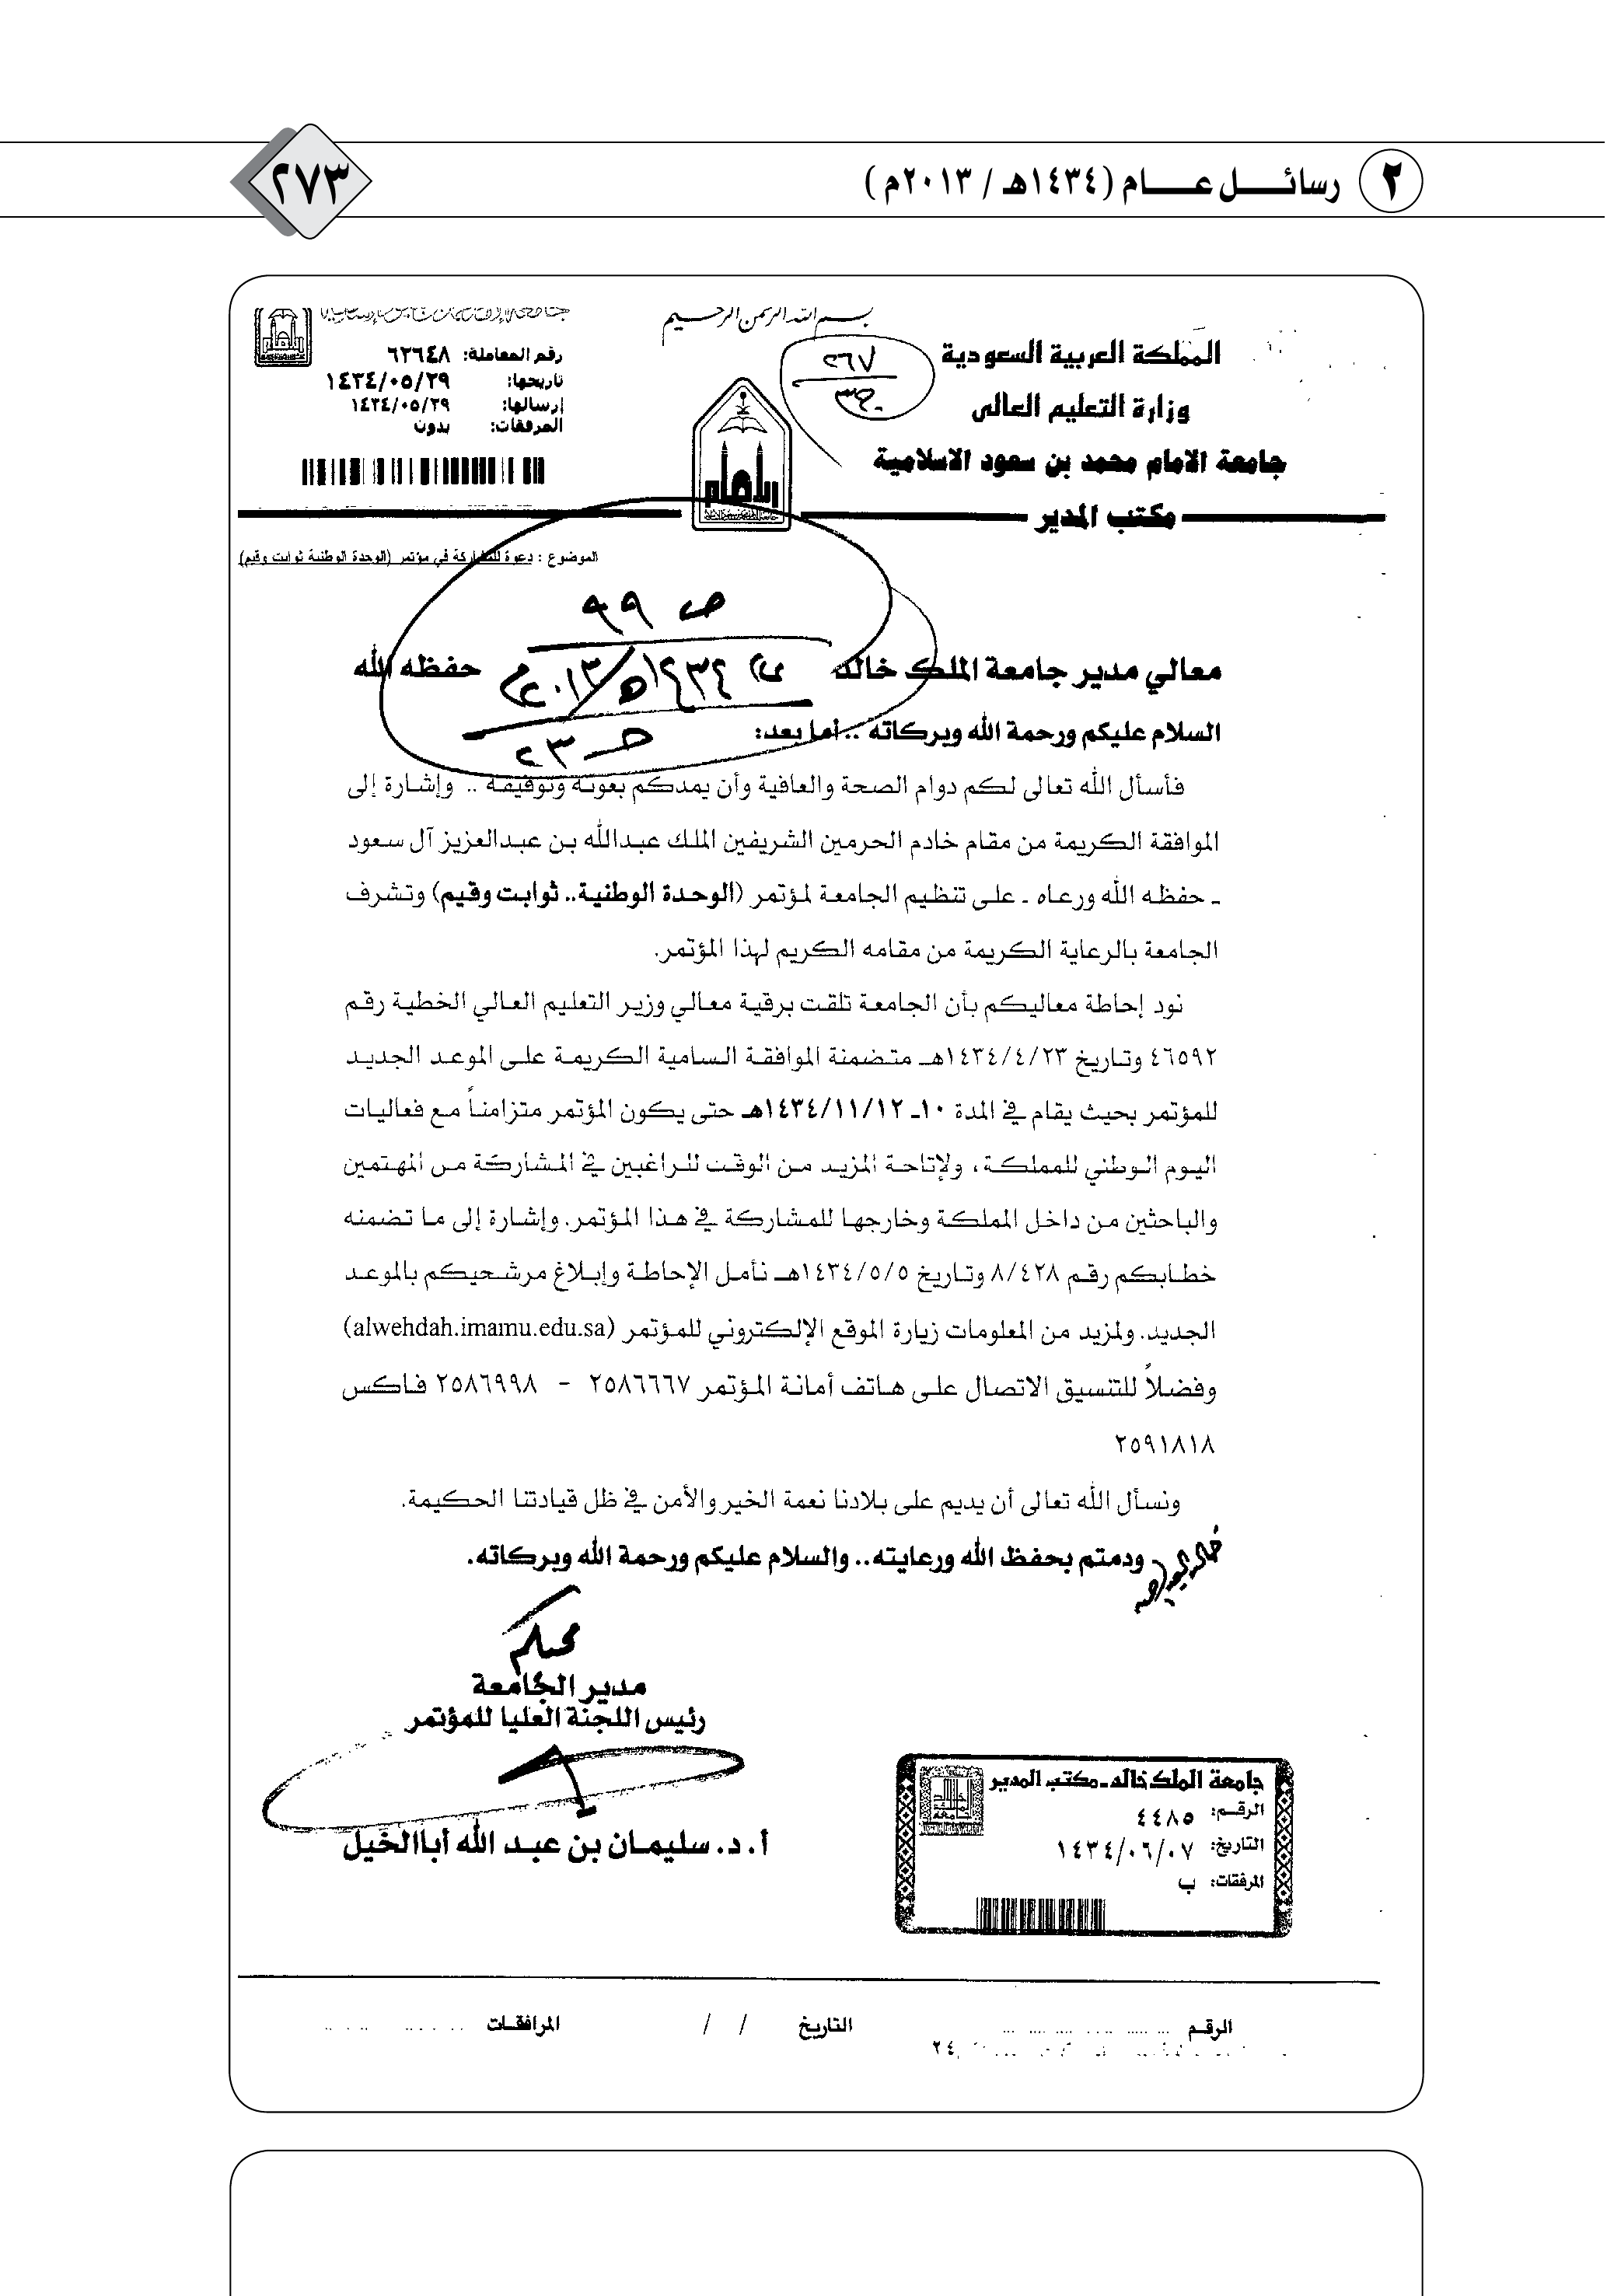 ٢ رسائل عام (١٤٣٤هـ / ٢٠١٣م)
٢٧٣
بسم الله الرحمن الرحيم
المملكة العربية السعودية
وزارة التعليم العالي
جامعة الامام محمد بن سعود الاسلامية
مكتب المدير
٢٦٧
رقم المعاملة: ٦٢٦٤٨
تاريخها: ١٤٣٤/٠٥/٢٩
إرسالها: ١٤٣٤/٠٥/٢٩
المرفقات: بدون
الموضوع : دعوة للمشاركة في مؤتمر (الوحدة الوطنية ثوابت وقيم)
ص ٩٩
١٤٣٤هـ/٢٠١٣م
حـ ٢٣
معالي مدير جامعة الملك خالد حفظه الله
السلام عليكم ورحمة الله وبركاته .. أما بعد:
فأسأل الله تعالى لكم دوام الصحة والعافية وأن يمدكم بعونه وتوفيقه .. وإشارة إلى
الموافقة الكريمة من مقام خادم الحرمين الشريفين الملك عبدالله بن عبدالعزيز آل سعود
ـ حفظه الله ورعاه ـ على تنظيم الجامعة لمؤتمر (الوحدة الوطنية.. ثوابت وقيم) وتشرف
الجامعة بالرعاية الكريمة من مقامه الكريم لهذا المؤتمر.
نود إحاطة معاليكم بأن الجامعة تلقت برقية معالي وزير التعليم العالي الخطية رقم
٤٦٥٩٢ وتاريخ ١٤٣٤/٤/٢٣هـ متضمنة الموافقة السامية الكريمة على الموعد الجديد
للمؤتمر بحيث يقام في المدة ١٠ـ ١٤٣٤/١١/١٢هـ حتى يكون المؤتمر متزامناً مع فعاليات
اليوم الوطني للمملكة، ولإتاحة المزيد من الوقت للراغبين في المشاركة من المهتمين
والباحثين من داخل المملكة وخارجها للمشاركة في هذا المؤتمر. وإشارة إلى ما تضمنه
خطابكم رقم ٨/٤٢٨ وتاريخ ١٤٣٤/٥/٥هـ نأمل الإحاطة وإبلاغ مرشحيكم بالموعد
الجديد. ولمزيد من المعلومات زيارة الموقع الإلكتروني للمؤتمر (alwehdah.imamu.edu.sa)
وفضلاً للتنسيق الاتصال على هاتف أمانة المؤتمر ٢٥٨٦٦٦٧ - ٢٥٨٦٩٩٨ فاكس
٢٥٩١٨١٨
ونسأل الله تعالى أن يديم على بلادنا نعمة الخير والأمن في ظل قيادتنا الحكيمة.
ودمتم بحفظ الله ورعايته.. والسلام عليكم ورحمة الله وبركاته.
مدير الجامعة
رئيس اللجنة العليا للمؤتمر
أ. د. سليمان بن عبد الله أباالخيل
جامعة الملك خالد - مكتب المدير
الرقم: ٤٤٨٥
التاريخ: ١٤٣٤/٠٦/٠٧
المرفقات: ب
الرقم التاريخ / / المرافقات